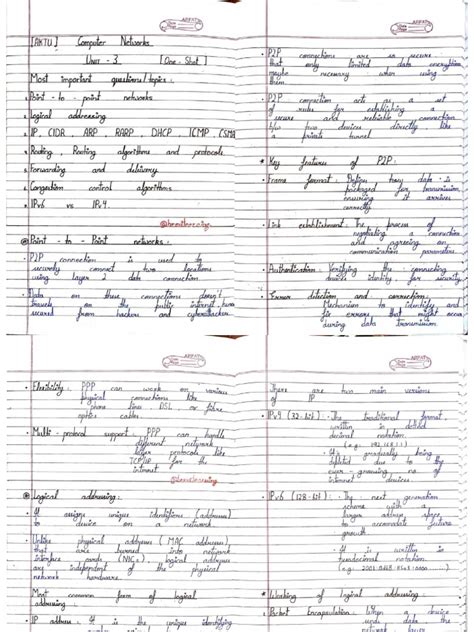 [AKTU] Computer Networks.
Unit - 3 [One - Shot]
Most important questions/topics:
Point - to - point networks
Logical addressing
IP, CIDR, ARP, RARP, DHCP, ICMP, CSMA
Routing, Routing algorithms and protocols.
Forwarding and delivery
Congestion control algorithms
IPv6 vs IPv4.
Point - to - Point networks.
P2P connection is used to
securely connect two locations
using layer 2 data connection
Data on these connections doesn't
travels on the public internet
secured from hackers and
P2P connections are
that only limited data encryption
maybe necessary when using
them.
P2P connection acts as a set
of rules for establishing a
secure and reliable connection
b/w two devices directly like
a private tunnel
* Key features of P2P:
Frame format: data is
packaged for transmission,
ensuring it arrives
correctly
Link establishment: The process of
negotiating a connection
and agreeing on
communication parameters.
Authentication Verifying the connecting
devices identify for security
Error detection and correction:
Mechanism to identify and
fix errors that might occur
during data transmission
Flexibility: PPP can work on various
physical connections like
phone lines DSL, or fibre
optics cables
Multi - protocol support: PPP can handle
different network
layer protocols like
TCP/IP for the
internet
Logical addressing:
It assigns unique identifiers (address)
to device on network.
Unlike physical addresses (MAC address),
that are burned into network
interface cards (NICs), logical addresses
are independent of the physical
network hardware.
Most common form of logical
addressing:
IP address: It is the unique
There are two main versions
of IP
IPv4 (32-bit): The traditional format,
written in dotted
decimal notation.
It's gradually being
depleted due to the
ever-growing no. of
internet devices
IPv6 (128-bit): The next generation
scheme with a
larger address space
to accomodate future
growth
It is written in
hexadecimal notation.
Working of logical addressing:
Packet Encapsulation: When a device